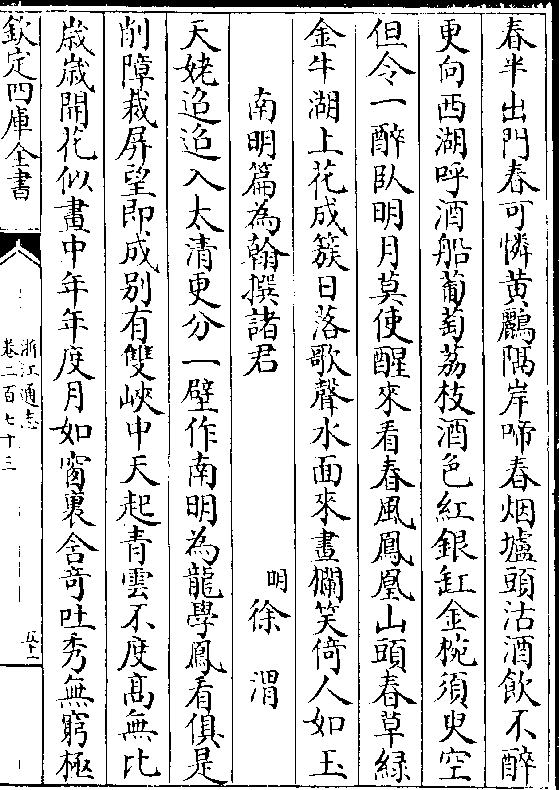 春半出門春可憐黄鸝隅岸啼春烟壚頭沽酒飲不醉
更向西湖呼酒船葡萄荔枝酒色紅銀缸金椀須臾空
但令一醉臥明月莫使醒來看春風鳳凰山頭春草緑
金牛湖上花成簇日落歌聲水面來畫欄笑倚人如玉
南明篇為翰撰諸君
明徐渭
天姥迢迢入太清更分一壁作南明為龍學鳳看俱是
削障裁屏望即成别有雙峽中天起青雲不度髙無比
嵗嵗開花似畫中年年度月如窗裏含竒吐秀無窮極
欽定四庫全書
浙江通志
卷二百七十三
五十一